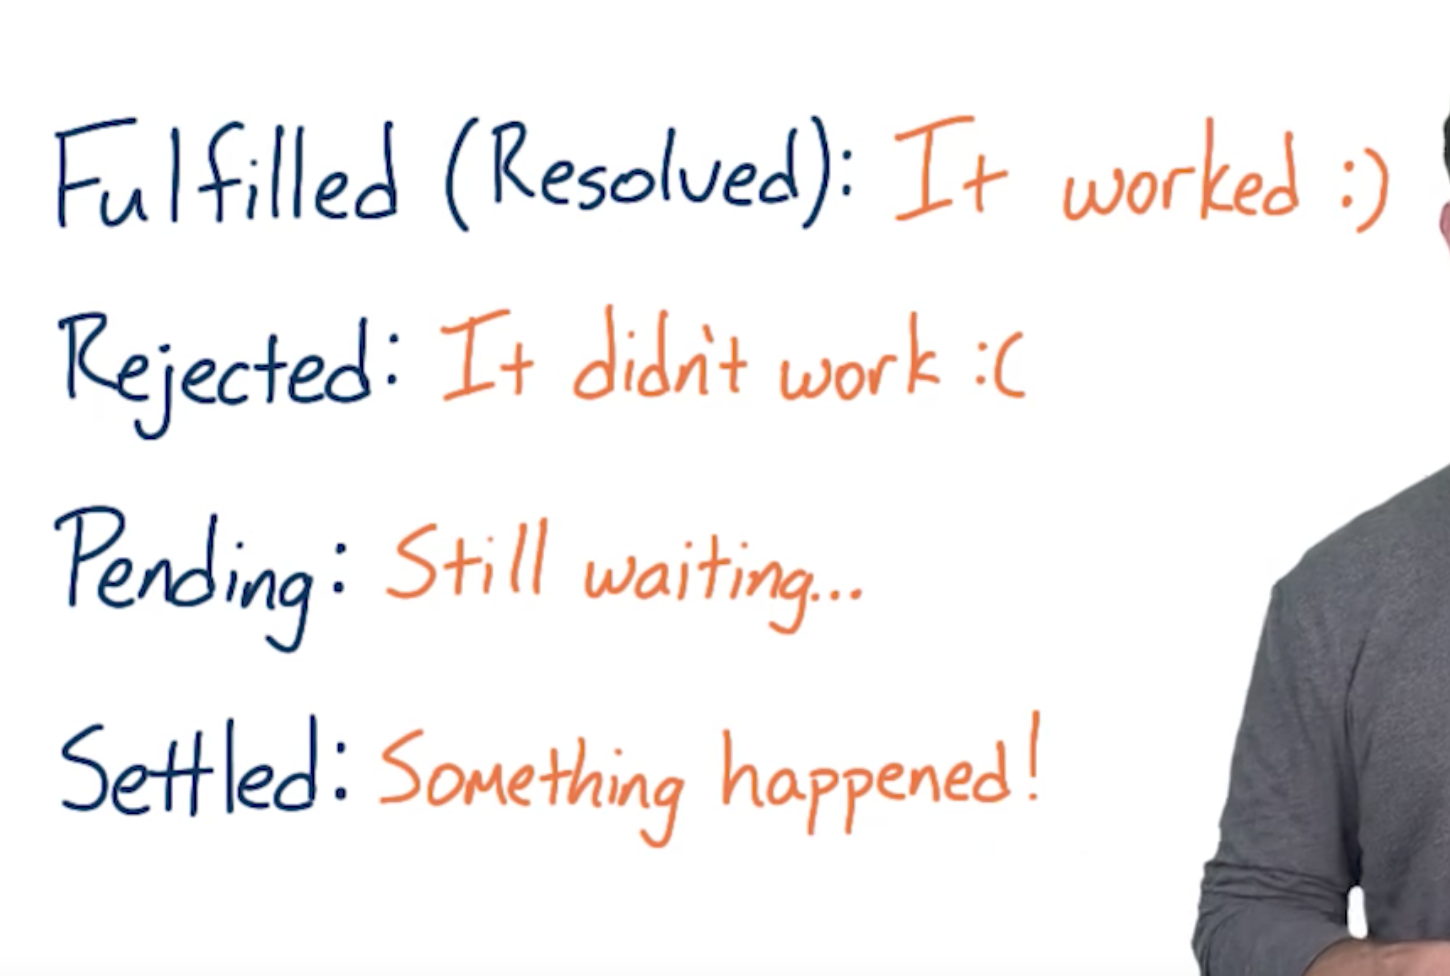 Fulfilled (Resolved): It worked :)
Rejected: It didn't work :(
Pending: Still waiting...
Settled: Something happened!